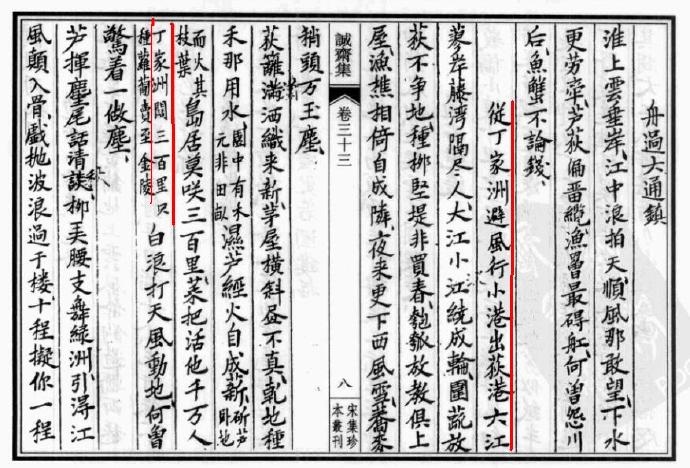 舟過大通鎮
淮上雲垂岸江中浪拍天順風那敢望下水
更労牽芦荻偏畨纜漁罾最碍舡何曽怨川
后魚蟹不論錢
從丁家洲避風行小港出荻港大江
蓼岸藤湾隔尽人大江小江繞成輪圍蔬放
荻不争地種栁堅堤非買春匏瓠放教俱上
屋漁樵相倚自成隣夜来更下西風雪蕎麥
稍頭万玉塵
誠齋集
卷三十三
八
宋集珍
本叢刊
荻籬满洒織来新茅屋橫斜昼不真乹地種
禾那用水園中有禾元非田畝濕芦經火自成薪斫芦卧地
而火其枝葉島居莫咲三百里菜把活他千万人
丁家洲闊三百里只種蘿蔔賣至金陵白浪打天風動地何曽
驚着一做塵
芦揮麈尾話清談栁美腰支舞綠洲引淂江
風顛入骨戯抛波浪過于楼十程擬你一程